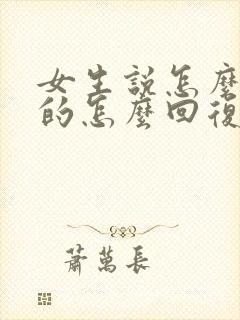 女生説怎麼
的怎麼回復
蕭萬長